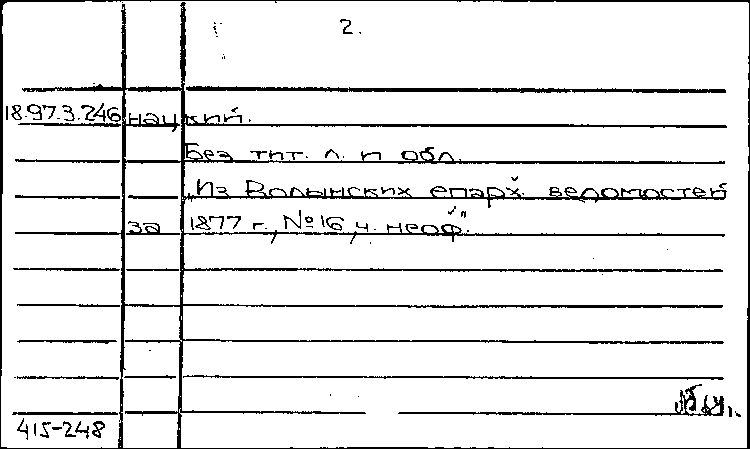 2.
18.97.3.246 нацкий.
Без тит. л. и обл.
„Из Волынских епарх. ведомостей
за 1877 г., №16, ч. неоф."
415-248